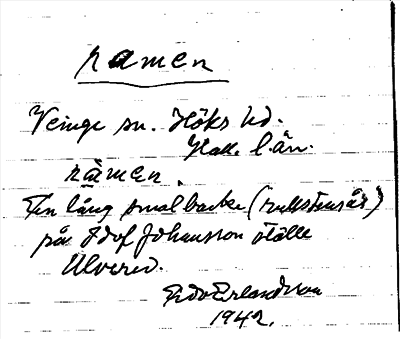 ramen
Veinge sn. Höks hd.
Hall. län.
ràmen.
En lång smal backe (rullstensås)
på Adof Johansson ställe
Ulvered.
Edv Erlandsson
1942.